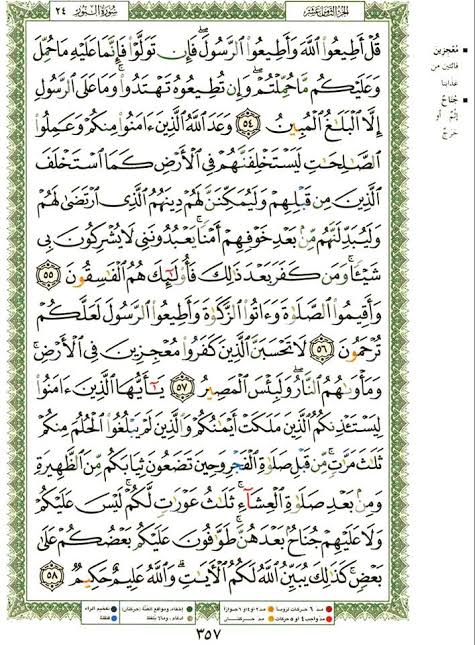 الجزء الثامن عشر
سورة النور ٢٤
قُلْ أَطِيعُوا۟ ٱللَّهَ وَأَطِيعُوا۟ ٱلرَّسُولَ ۖ فَإِن تَوَلَّوْا۟ فَإِنَّمَا عَلَيْهِ مَا حُمِّلَ
وَعَلَيْكُم مَّا حُمِّلْتُمْ ۖ وَإِن تُطِيعُوهُ تَهْتَدُوا۟ ۚ وَمَا عَلَى ٱلرَّسُولِ
إِلَّا ٱلْبَلَٰغُ ٱلْمُبِينُ ٥٤ وَعَدَ ٱللَّهُ ٱلَّذِينَ ءَامَنُوا۟ مِنكُمْ وَعَمِلُوا۟
ٱلصَّٰلِحَٰتِ لَيَسْتَخْلِفَنَّهُمْ فِى ٱلْأَرْضِ كَمَا ٱسْتَخْلَفَ
ٱلَّذِينَ مِن قَبْلِهِمْ وَلَيُمَكِّنَنَّ لَهُمْ دِينَهُمُ ٱلَّذِى ٱرْتَضَىٰ لَهُمْ
وَلَيُبَدِّلَنَّهُم مِّنۢ بَعْدِ خَوْفِهِمْ أَمْنًا ۚ يَعْبُدُونَنِى لَا يُشْرِكُونَ بِى
شَيْـًٔا ۚ وَمَن كَفَرَ بَعْدَ ذَٰلِكَ فَأُو۟لَٰٓئِكَ هُمُ ٱلْفَٰسِقُونَ ٥٥
وَأَقِيمُوا۟ ٱلصَّلَوٰةَ وَءَاتُوا۟ ٱلزَّكَوٰةَ وَأَطِيعُوا۟ ٱلرَّسُولَ لَعَلَّكُمْ
تُرْحَمُونَ ٥٦ لَا تَحْسَبَنَّ ٱلَّذِينَ كَفَرُوا۟ مُعْجِزِينَ فِى ٱلْأَرْضِ ۚ
وَمَأْوَىٰهُمُ ٱلنَّارُ ۖ وَلَبِئْسَ ٱلْمَصِيرُ ٥٧ يَٰٓأَيُّهَا ٱلَّذِينَ ءَامَنُوا۟
لِيَسْتَـْٔذِنكُمُ ٱلَّذِينَ مَلَكَتْ أَيْمَٰنُكُمْ وَٱلَّذِينَ لَمْ يَبْلُغُوا۟ ٱلْحُلُمَ مِنكُمْ
ثَلَٰثَ مَرَّٰتٍ ۚ مِّن قَبْلِ صَلَوٰةِ ٱلْفَجْرِ وَحِينَ تَضَعُونَ ثِيَابَكُم مِّنَ ٱلظَّهِيرَةِ
وَمِنۢ بَعْدِ صَلَوٰةِ ٱلْعِشَآءِ ۚ ثَلَٰثُ عَوْرَٰتٍ لَّكُمْ ۚ لَيْسَ عَلَيْكُمْ
وَلَا عَلَيْهِمْ جُنَاحٌۢ بَعْدَهُنَّ ۚ طَوَّٰفُونَ عَلَيْكُم بَعْضُكُمْ عَلَىٰ
بَعْضٍ ۚ كَذَٰلِكَ يُبَيِّنُ ٱللَّهُ لَكُمُ ٱلْءَايَٰتِ ۗ وَٱللَّهُ عَلِيمٌ حَكِيمٌ ٥٨
■ مُعْجِزِين
فائتين من
عذابنا
■ جُنَاحٌ
إثْمٌ أو
حَرَجٌ
مد ٦ حركات لزوماً ● مد ٢ أو ٤ أو ٦ جوازاً
مد واجب ٤ أو ٥ حركات ● مد حركتان
إخفاء، ومواقع الغنة (حركتان) ● تفخيم الراء
إدغام، وما لا يلفظ ● قلقلة
٣٥٧